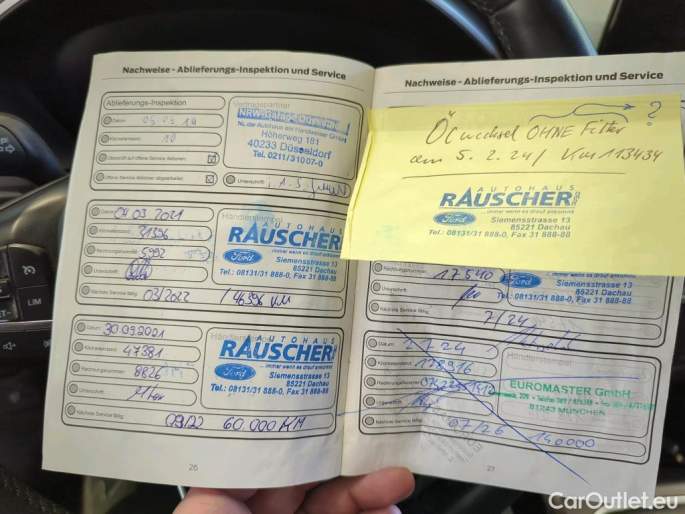 Nachweise - Ablieferungs-Inspektion und Service
Ablieferungs-Inspektion
Vertragspartner
Datum
Höherweg 181
40233 Düsseldorf
Tel. 0211/31007-0
Unterschrift
Datum 04.03.2021
Händlerstempel
AUTOHAUS
RAUSCHER
...immer wenn es drauf ankommt
Ford
Siemensstrasse 13
85221 Dachau
Tel.: 08131/31 888-0, Fax 31 888-88
5992
Unterschrift
Nächste Service fällig 03/2022 / 46396 KM
Datum 30.09.2021
Händlerstempel
Kilometerstand 47381
AUTOHAUS
RAUSCHER
...immer wenn es drauf ankommt
Ford
Siemensstrasse 13
85221 Dachau
Tel.: 08131/31 888-0, Fax 31 888-88
Rechnungsnummer 8826
Unterschrift
Nächste Service fällig 09/22 60.000 KM
26
Nachweise - Ablieferungs-Inspektion und Service
?
Ölwechsel OHNE Filter
am 5.2.24/ KM 113434
AUTOHAUS
RAUSCHER
...immer wenn es drauf ankommt
Ford
Siemensstrasse 13
85221 Dachau
Tel.: 08131/31 888-0, Fax 31 888-88
Rechnungsnummer 17540
85221 Dachau
Tel.: 08131/31 888-0, Fax 31 888-88
Unterschrift
Nächste Service fällig 7/24
Datum
Händlerstempel
Kilometerstand 118916
EUROMASTER GmbH
81243 MÜNCHEN
Unterschrift
Nächste Service fällig 07/26 140000
27
LIM
CarOutlet.eu